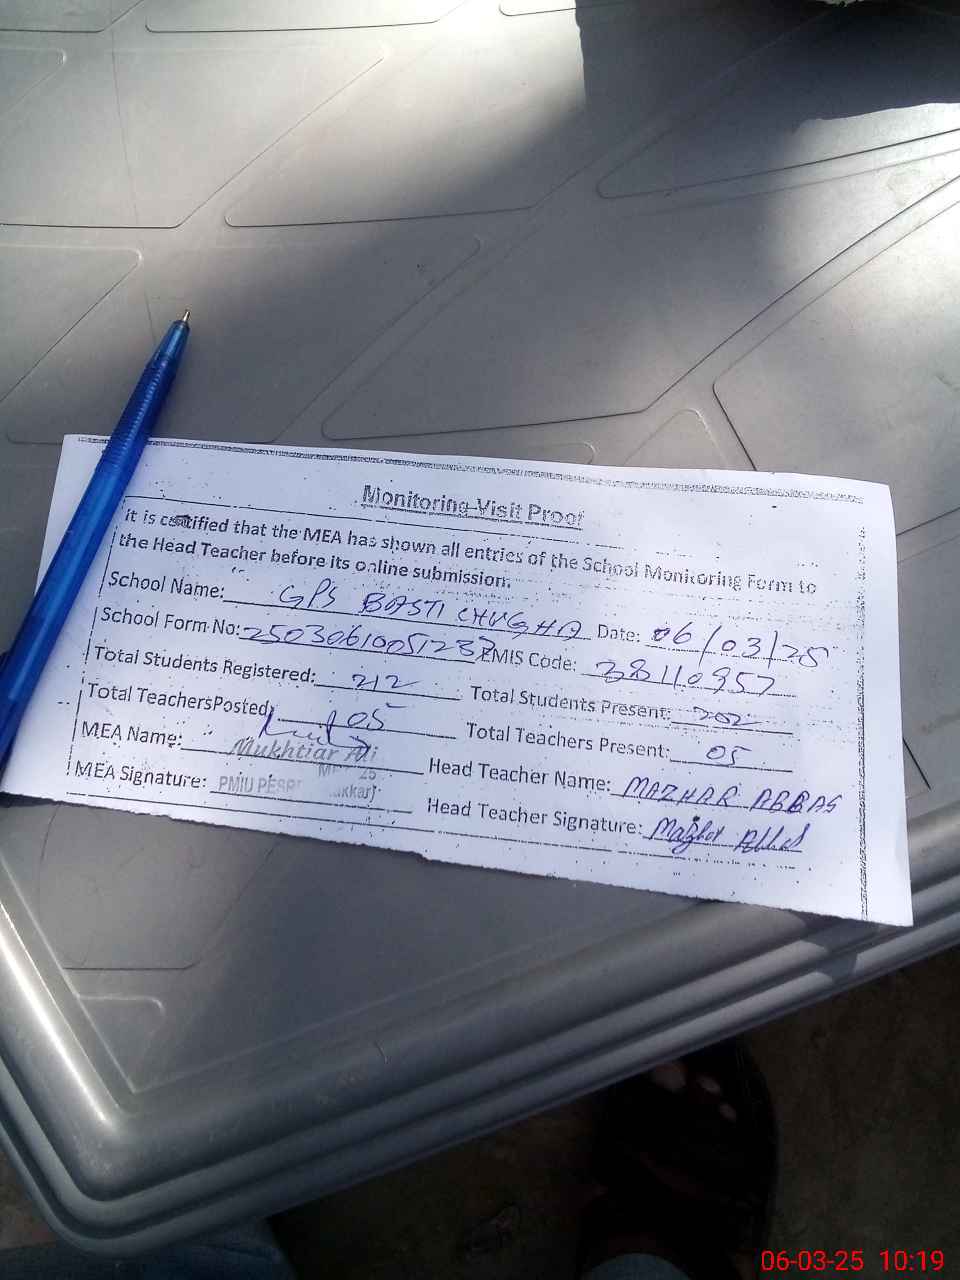 Monitoring Visit Proof
it is certified that the MEA has shown all entries of the School Monitoring Form to
the Head Teacher before its online submission.
School Name: GPS BASTI CHUGHA Date: 06/03/25
School Form No: 25030610051237 EMIS Code: 38110957
Total Students Registered: 212 Total Students Present: 202
Total TeachersPosted: 05 Total Teachers Present: 05
MEA Name: Mukhtiar Ali Head Teacher Name: MAZHAR ABBAS
MEA Signature: PMIU Head Teacher Signature: Mazhar Abbas
06-03-25 10:19